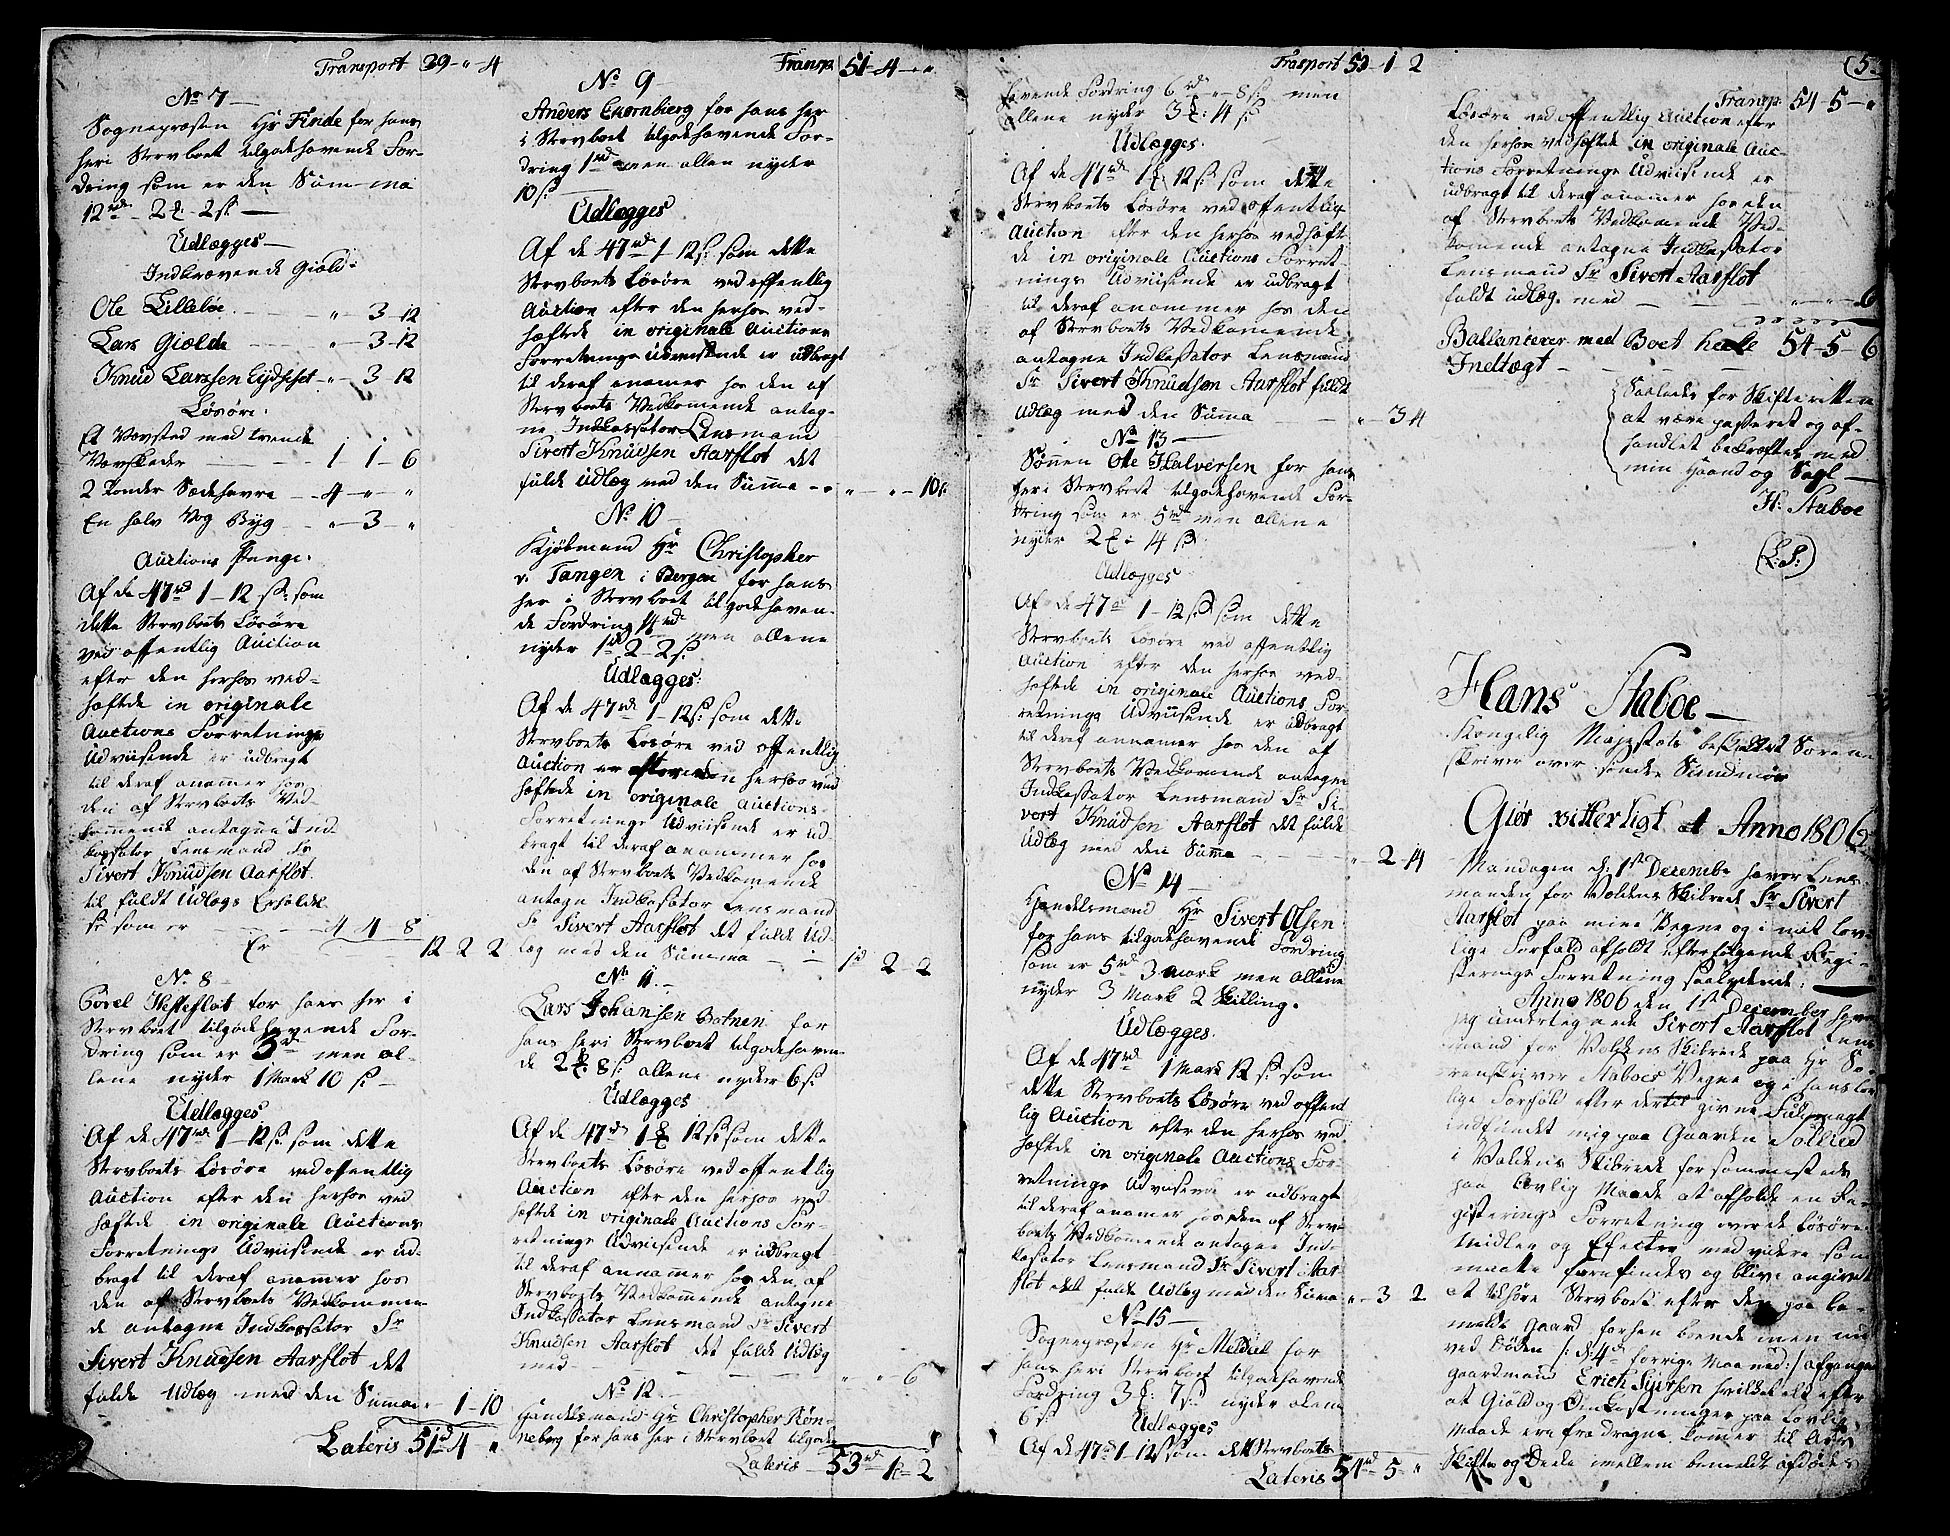 Transport 39 - " 4
No 7 —
Sognepræsten Hr Finde for hans
heri Stervboet tilgodehavende For-
dring som er den Summa
12 rd - 2 - 2 s —
Udlægges —
Indkrævende Giæld.
Ole Lillebøe - - - " - 3 - 12
Lars Giælde - - - " - 3 - 12
Knud Larssen Eydseset - " - 3 - 12
Løsøre:
Et Vævsted med tvende
Vævskeder - - - 1 1 - 6
2 Tønder Sædehavre - - 4 - " - "
En halv Vog Byg - - " - 3 - "
Auctions Penge.
Af de 47 rd 1 - 12 s: som
dette Stervboets Løsøre
ved offentlig Auction
efter den herhos ved-
hæftede in originale
Auctions Forretnings
Udviisende er udbragt
til deraf anammer hos
den af Stervboets Ved-
kommende antagne Ind-
kassator Lensmand Sr
Sivert Knudsen Aarflot
til fuldt Udlægs Erholdel
se som er - - - 4 4 8
Er 12 2 2
No 8 —
Gørel Heltefløt for hans her i
Stervboet tilgodehavende For-
dring som er 3 rd men al-
lene nyder 1 Mark 10 s —
Udlægges
Af de 47 rd 1 - 12 s: som dette
Stervboets Løsøre ved offentlig
Auction efter den herhos ved
hæftede in originale Auctions
Forretnings Udviisende er ud-
bragt til deraf anammer hos
den af Stervboets Vedkommen-
de antagne Indkassator Sr
Sivert Knudsen Aarflot det
fulde Udlæg med den Summa " 1 - 10
Lateris 51 rd 4 - "
Transp. 51 - 4 - "
No 9
Anders for hans her
i Stervboet tilgodehavende For-
dring 1 rd men allene nyder
10 s
Udlægges
Af de 47 rd 1 - 12 s: som dette
Stervboets Løsøre ved offentlig
Auction efter den herhos ved-
hæftede in originale Auctions
Forretnings Udviisende er udbragt
til deraf anamer hos den af
Stervboets Vedkomende antag-
ne Indkassator Lensmand
Sivert Knudsen Aarflot det
fulde Udlæg med den Summa - " - " - 10 s
No 10 —
Kjøbmand Hr Christopher
v. Tangen i Bergen for hans
her i Stervboet tilgodehaven-
de Fordring 14 rd men allene
nyder 1 rd 2 - 2 s:
Udlægges:
Af de 47 rd 1 - 12 s: som dette
Stervboets Løsøre ved offentlig
Auction efter den herhos ved
hæftede in originale Auctions-
Forretnings Udviisende er ud
bragt til deraf anammer hos
den af Stervboets Vedkomende
antagn Indkasator Lensmand
Sr Sivert Aarflot det fulde Ud-
læg med den Summa - - 1 rd 2 - 2
No 11 —
Lars Johansen Botnen for
hans heri Stervboet tilgodehaven-
de 2 8 s: allene nyder 6 s:
Udlægges
Af de 47 rd 1 12 s: som dette
Stervboets Løsøre ved offentlig
Auction efter den herhos ved
hæftede in originale Auctions For-
retnings Udviisende er udbragt
til deraf annammer hos den, af
Stervboets Vedkommende antagne
Indkassator Lensmand Sr Sivert
Knudsen Aarflot det fulde Udlæg
med - - - " " 6
No 12 —
Handelsmand Hr Christopher Røn-
neberg for hans her i Stervboet tilgode
Lateris - 53 rd - 1 - 2
Trasport 53 - 1 2
havende Fordring 6 rd - " - 8 s: men
allene nyder 3 : 4 s
Udlægges.
Af de 47 rd 1 12 s: som dette
Stervboets Løsøre ved offentlig
Auction efter den herhos vedhæft
de in originale Auctions Forret-
nings Udviisende er udbragt
til deraf anammer hos den
af Stervboets Vedkomende
antagne Indkassator Lensmand
Sr Sivert Knudsen Aarflot fuldt
Udlæg med den Summa - - " - 3 4
No 13 —
Sønnen Ole Halversen for hans
heri Stervboet tilgodehavende For-
dring som er 5 rd men allene
nyder 2 : 14 s:
Udlægges
Af de 47 rd 1 - 12 s: som dette
Stervboets Løsøre ved offentlig
Auction efter den herhos ved-
hæftede in originale Auctions For-
retnings Udviisende er udbragt
til deraf annamer hos den af
Stervboets Vedkomende antagne
Indkassator Lensmand Sr Si-
vert Knudsen Aarflot det fulde
Udlæg med den Summa - - - " 2 14
No 14 —
Handelsmand Hr Sivert Olsen
for hans tilgodehavende Fordring
som er 5 rd 3 Mark men allene
nyder 3 Mark 2 Skilling.
Udlægges.
Af de 47 rd 1 Mark 12 s: som
dette Stervboets Løsøre ved offent
lig Auction efter den herhos ved
hæftede in originale Auctions For-
retnings Udviisende er udbragt
til deraf anamer hos den af Sterv-
boets Vedkommende antagne Ind-
kasator Lensmand Sr Sivert Aar
flot det fulde Udlæg med den Suma " - 3 2
No 15 —
Sognepræsten Hr Meldal for
hans heri Stervboet tilgodehavende
Fordring 3 : 7 s: nyder alene
6 s:
Udlægges
Af de 47 rd 1 - 12 s: som dette Stervboets
Lateris 54 rd - 5 - "
Transp. 54 - 5 - "
Løsøre ved offentlig Auction efter
den herhos vedhæftede in originale Auc-
tions Forretnings Udviisende er
udbragt til deraf anamer hos den
af Stervboets Vedkomende Ved-
komende antagne Indkassator
Lensmand Sr Sivert Aarflot
fuldt udlæg med - - - " - " - 6
Ballancerer med Boet heele 54 - 5 - 6
Indtægt - - -
Saaledes for Skifteretten
at være passeret og af-
handlet bekræftes med
min Haand og Segl —
H: Staboe
(L:S:)
Hans Staboe —
Kongelig Majestæts bestaltet Soren-
skriver over søndre Sundmør
Giør vitterligt at Anno 1806
Mandagen d: 1st Decembr haver Lens-
manden for Voldens Skibrede Sr Sivert
Aarflot paa mine Vegne og i mit lov-
lige Forfald afholdt efterfølgende Regi-
sterings Forretning saalydende: —
Anno 1806 den 1st December haver
jeg undertegnede Sivert Aarflot Lens
mand for Voldens Skibrede paa Hr So-
renskriver Staboes Vegne og i hans lov
lige Forfald efter dertil givne Fuldmagt
indfundet mig paa Gaarden Sollied
i Voldens Skibrede for sammesteds
paa Lovlig Maade at afholde en Re-
gisterings Forretning over de Løsøre
Midler og Effecter med videre som
maatte forefindes og blive angivet
at tilhøre Stervboet efter den paa be-
melte Gaard forhen boende men nu
ved Døden /: d: 4d forrige Maaned :/ afgangne
Gaardmand Erich Siursen hvilket alt efter
at Giæld og Omkostninger paa Lovlig
Maade ere fradragne kommer til Arv
Skifte og Deele mellem bemelte afdødes